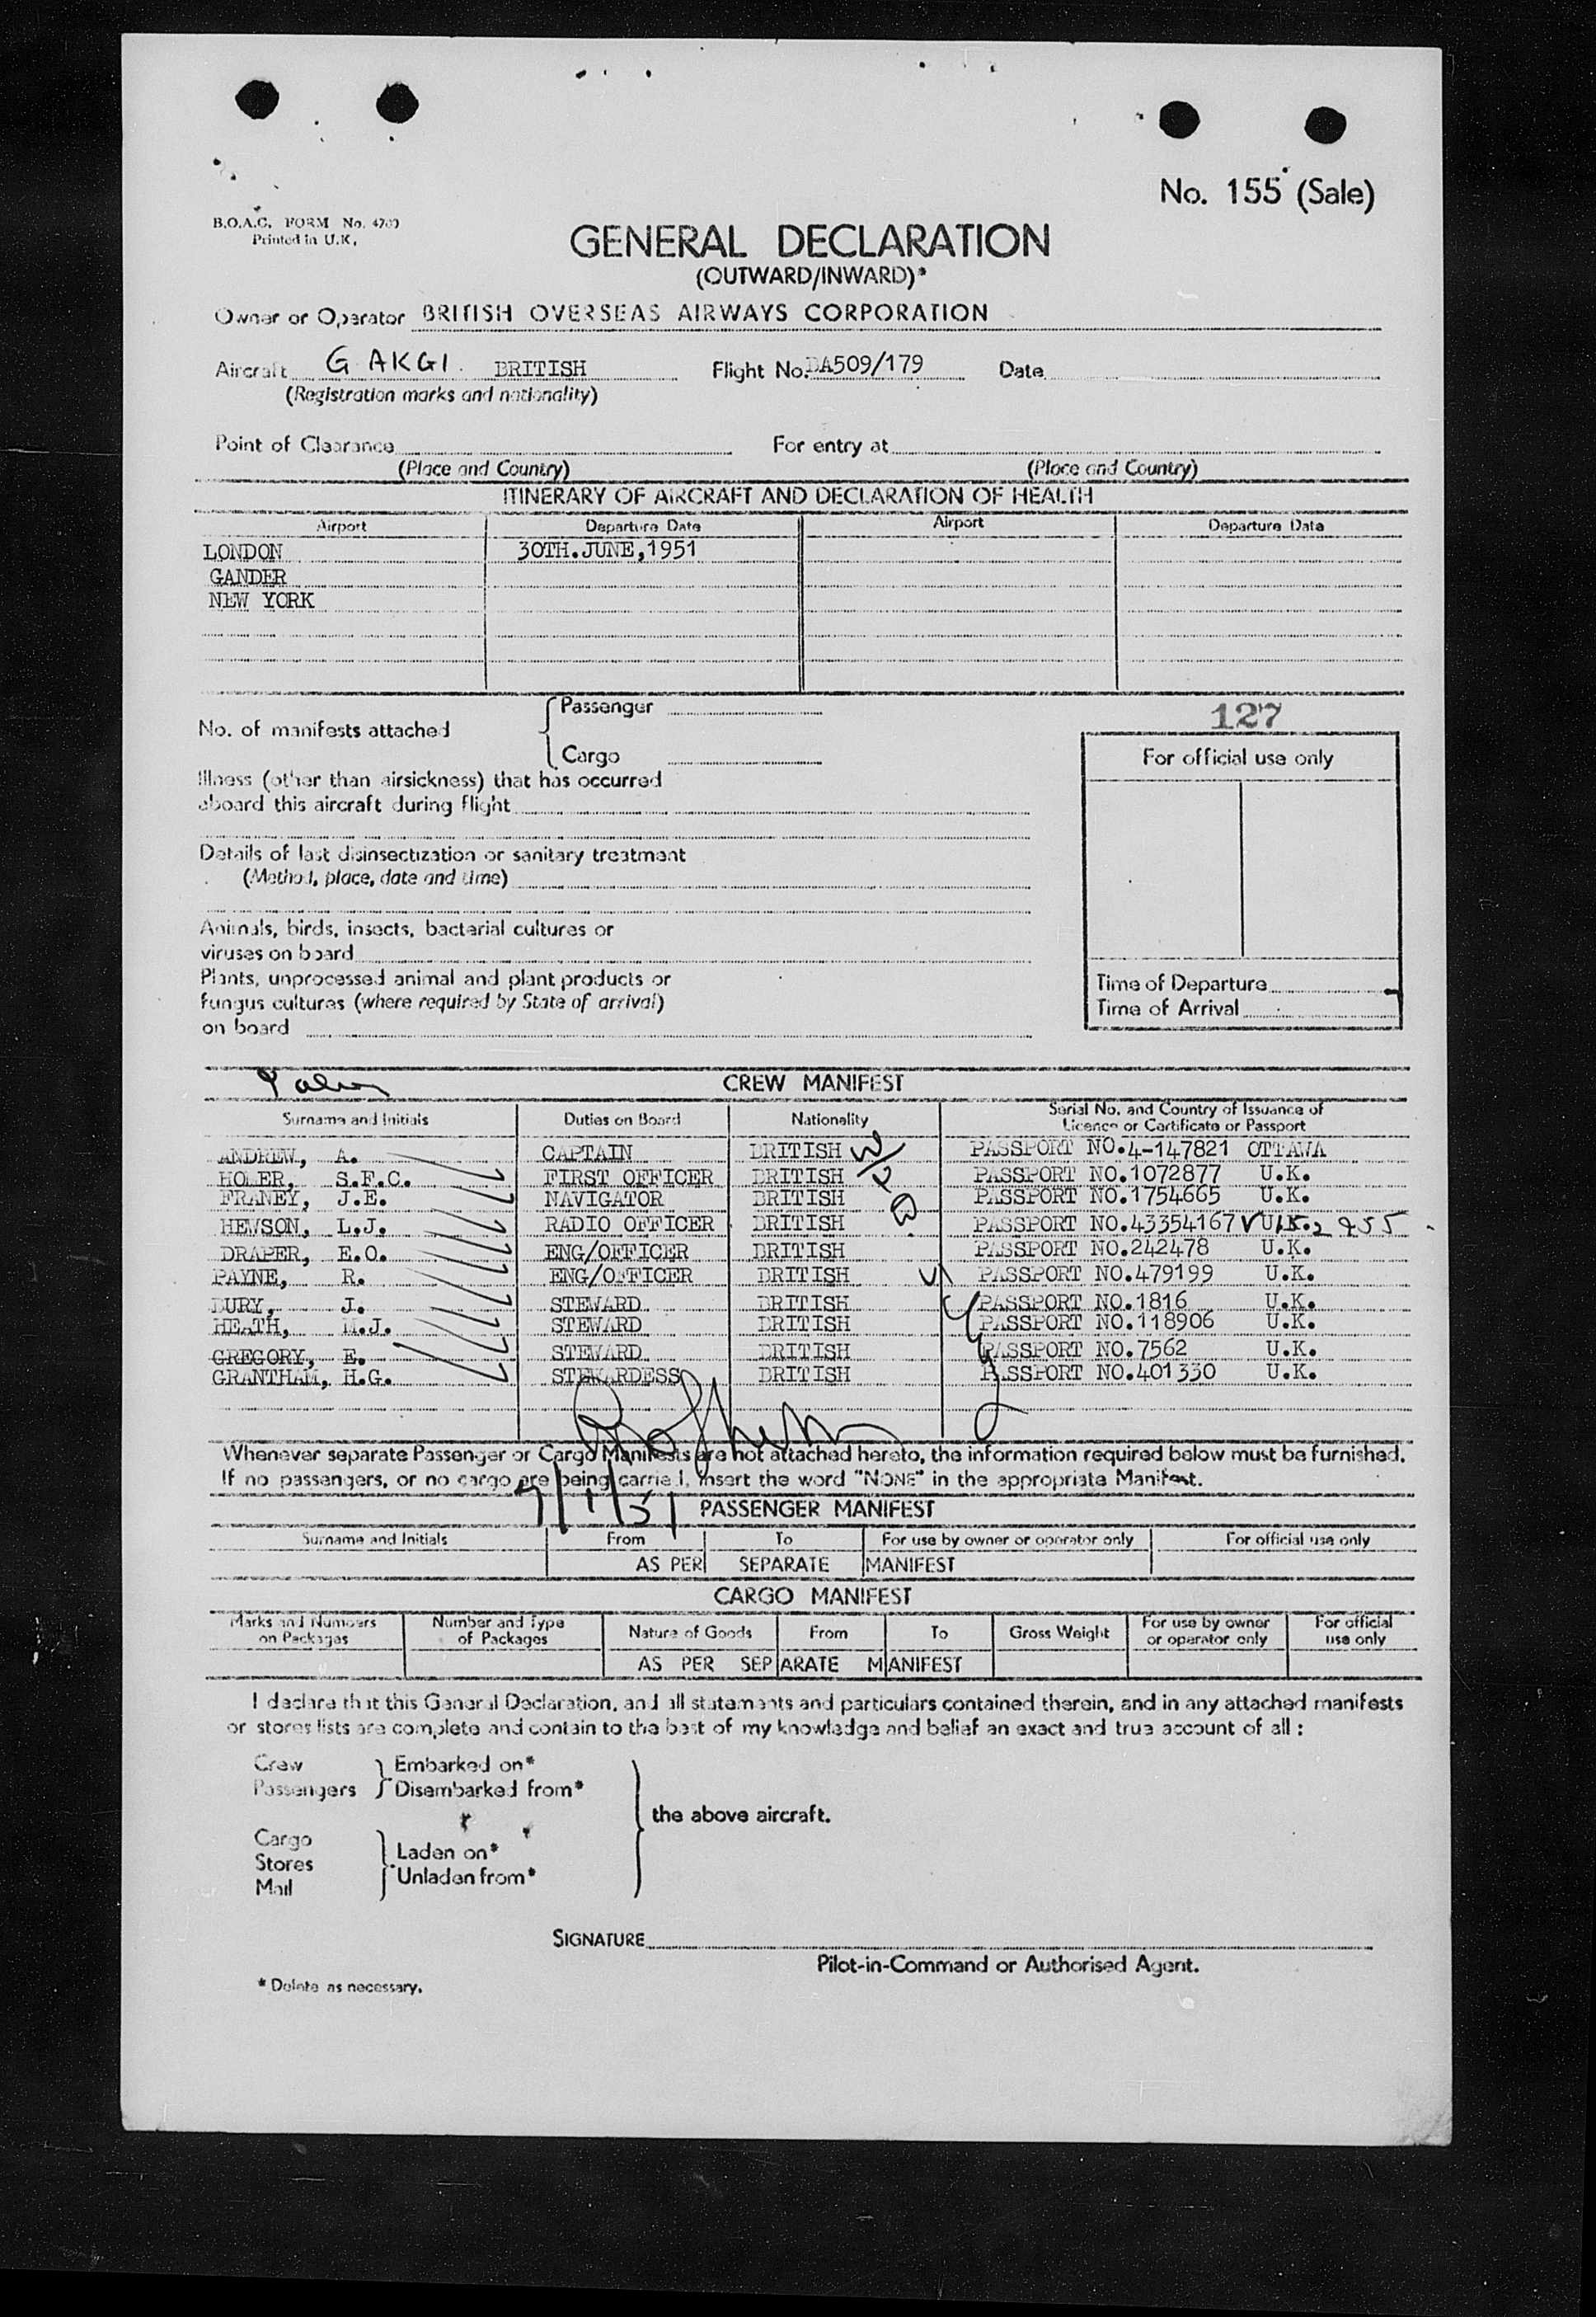 No. 155 (Sale)
B.O.A.C. FORM No.
Printed in U.K.
GENERAL DECLARATION
(OUTWARD/INWARD)*
Owner or Operator BRITISH OVERSEAS AIRWAYS CORPORATION
Aircraft G AKGI. BRITISH Flight No. BA509/179 Date
(Registration marks and nationality)
Point of Clearance For entry at
(Place and Country) (Place and Country)
ITINERARY OF AIRCRAFT AND DECLARATION OF HEALTH
Airport Departure Date Airport Departure Date
LONDON 30TH.JUNE,1951
GANDER
NEW YORK
127
No. of manifests attached
Passenger
Cargo
For official use only
Illness (other than airsickness) that has occurred
aboard this aircraft during flight
Details of last disinsectization or sanitary treatment
(Method, place, date and time)
Animals, birds, insects, bacterial cultures or
viruses on board
Plants, unprocessed animal and plant products or
fungus cultures (where required by State of arrival)
on board
Time of Departure
Time of Arrival
CREW MANIFEST
Surname and Initials Duties on Board Nationality Serial No. and Country of Issuance of
Licence or Certificate or Passport
ANDREW, A. CAPTAIN BRITISH PASSPORT NO.4-147821 OTTAWA
HOLER, S.F.C. FIRST OFFICER BRITISH PASSPORT NO.1072877 U.K.
FRANEY, J.E. NAVIGATOR BRITISH PASSPORT NO.1754665 U.K.
HEWSON, L.J. RADIO OFFICER BRITISH PASSPORT NO.43354167 U.K.
DRAPER, E.O. ENG/OFFICER BRITISH PASSPORT NO.242478 U.K.
PAYNE, R. ENG/OFFICER BRITISH PASSPORT NO.479199 U.K.
BURY, J. STEWARD BRITISH PASSPORT NO.1816 U.K.
HEATH, M.J. STEWARD BRITISH PASSPORT NO.118906 U.K.
GREGORY, E. STEWARD BRITISH PASSPORT NO.7562 U.K.
GRANTHAM, H.G. STEWARDESS BRITISH PASSPORT NO.401330 U.K.
Whenever separate Passenger or Cargo Manifests are not attached hereto, the information required below must be furnished.
If no passengers, or no cargo are being carried, insert the word "NONE" in the appropriate Manifest.
PASSENGER MANIFEST
Surname and Initials From To For use by owner or operator only For official use only
AS PER SEPARATE MANIFEST
CARGO MANIFEST
Marks and Numbers on Packages Number and Type of Packages Nature of Goods From To Gross Weight For use by owner or operator only For official use only
AS PER SEPARATE MANIFEST
I declare that this General Declaration, and all statements and particulars contained therein, and in any attached manifests
or stores lists are complete and contain to the best of my knowledge and belief an exact and true account of all :
Crew Embarked on*
Passengers Disembarked from*
the above aircraft.
Cargo
Stores Laden on*
Mail Unladen from*
SIGNATURE
Pilot-in-Command or Authorised Agent.
* Delete as necessary.